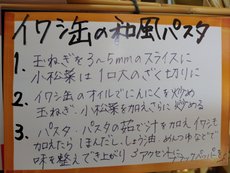 イワシ缶の和風パスタ
1. 玉ねぎを3〜5mmのスライスに
小松菜は1口大のざく切りに
2. イワシ缶のオイルでにんにくを炒め
玉ねぎ、小松菜を加えさらに炒める
3. パスタ・パスタの茹で汁を加えイワシも
加えたら ほんだし、しょう油、めんつゆなどで
味を整えてでき上がり アクセントに
ブラックペッパーを